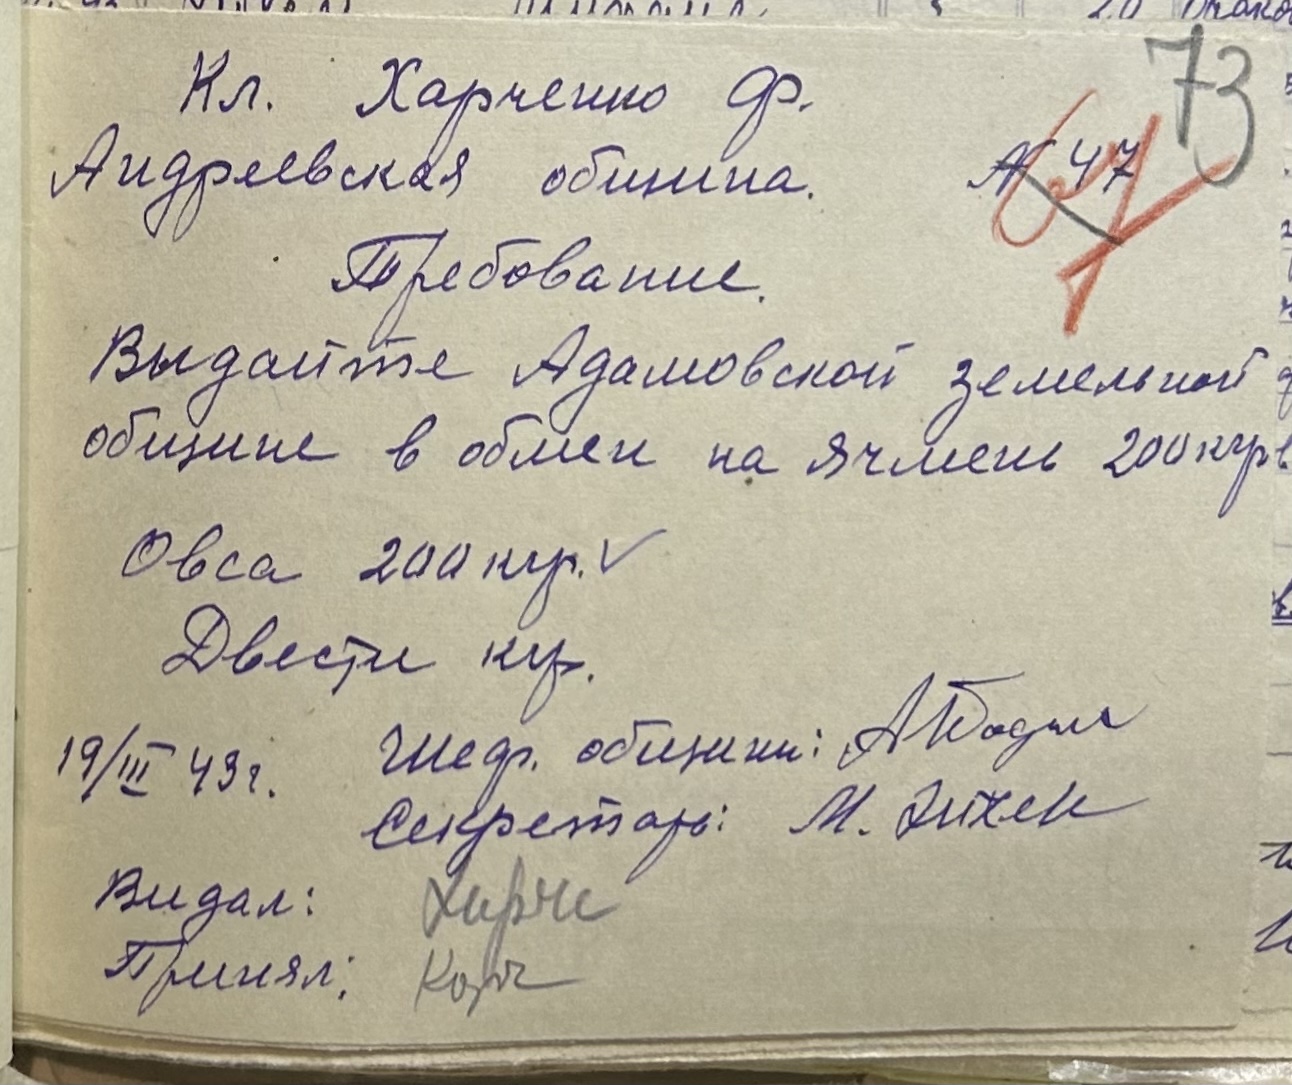 73
Кл. Харченко Ф.
Андреевская община. № 47
Требование.
Выдайте Адамовской земельной
общине в обмен на ячмень 200 кгр
Овса 200 кгр. ✓
Двести кгр.
19/III 43 г. Шеф. общины:
Секретарь: М.
Видал: Харче
Принял: